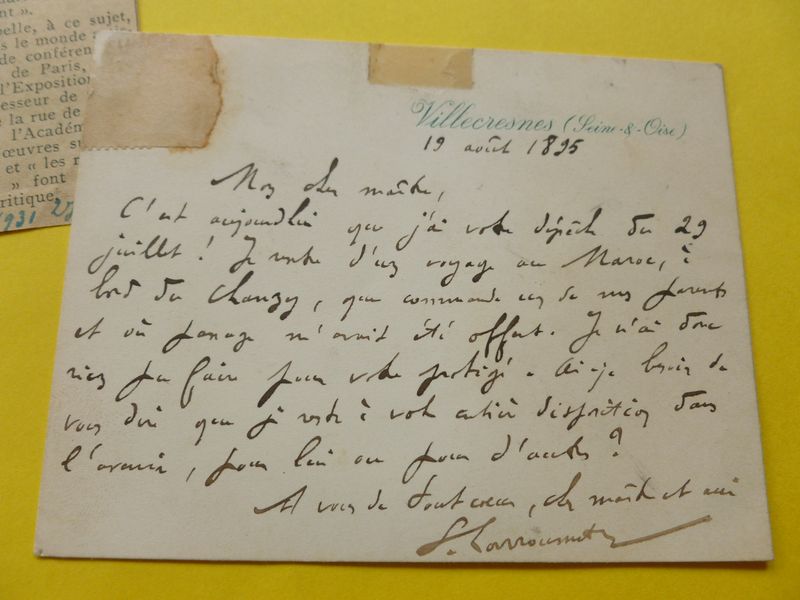 nt ».
pelle, à ce sujet,
s le monde
de conféren
de Paris,
l'Exposition
esseur de
e la rue de
l'Académ
œuvres su
et « les r
» font
ritique
1931
Villecresnes (Seine-&-Oise)
19 août 1895
Mon cher maître,
C'est aujourd'hui que j'ai votre dépêche du 29
juillet ! Je rentre d'un voyage au Maroc, à
bord du Chanzy, que commande un de mes parents
et où passage m'avait été offert. Je n'ai donc
rien pu faire pour votre protégé. Ai-je besoin de
vous dire que je reste à votre entière disposition dans
l'avenir, pour lui ou pour d'autres ?
A vous de tout cœur, cher maître et ami
G. Larroumet